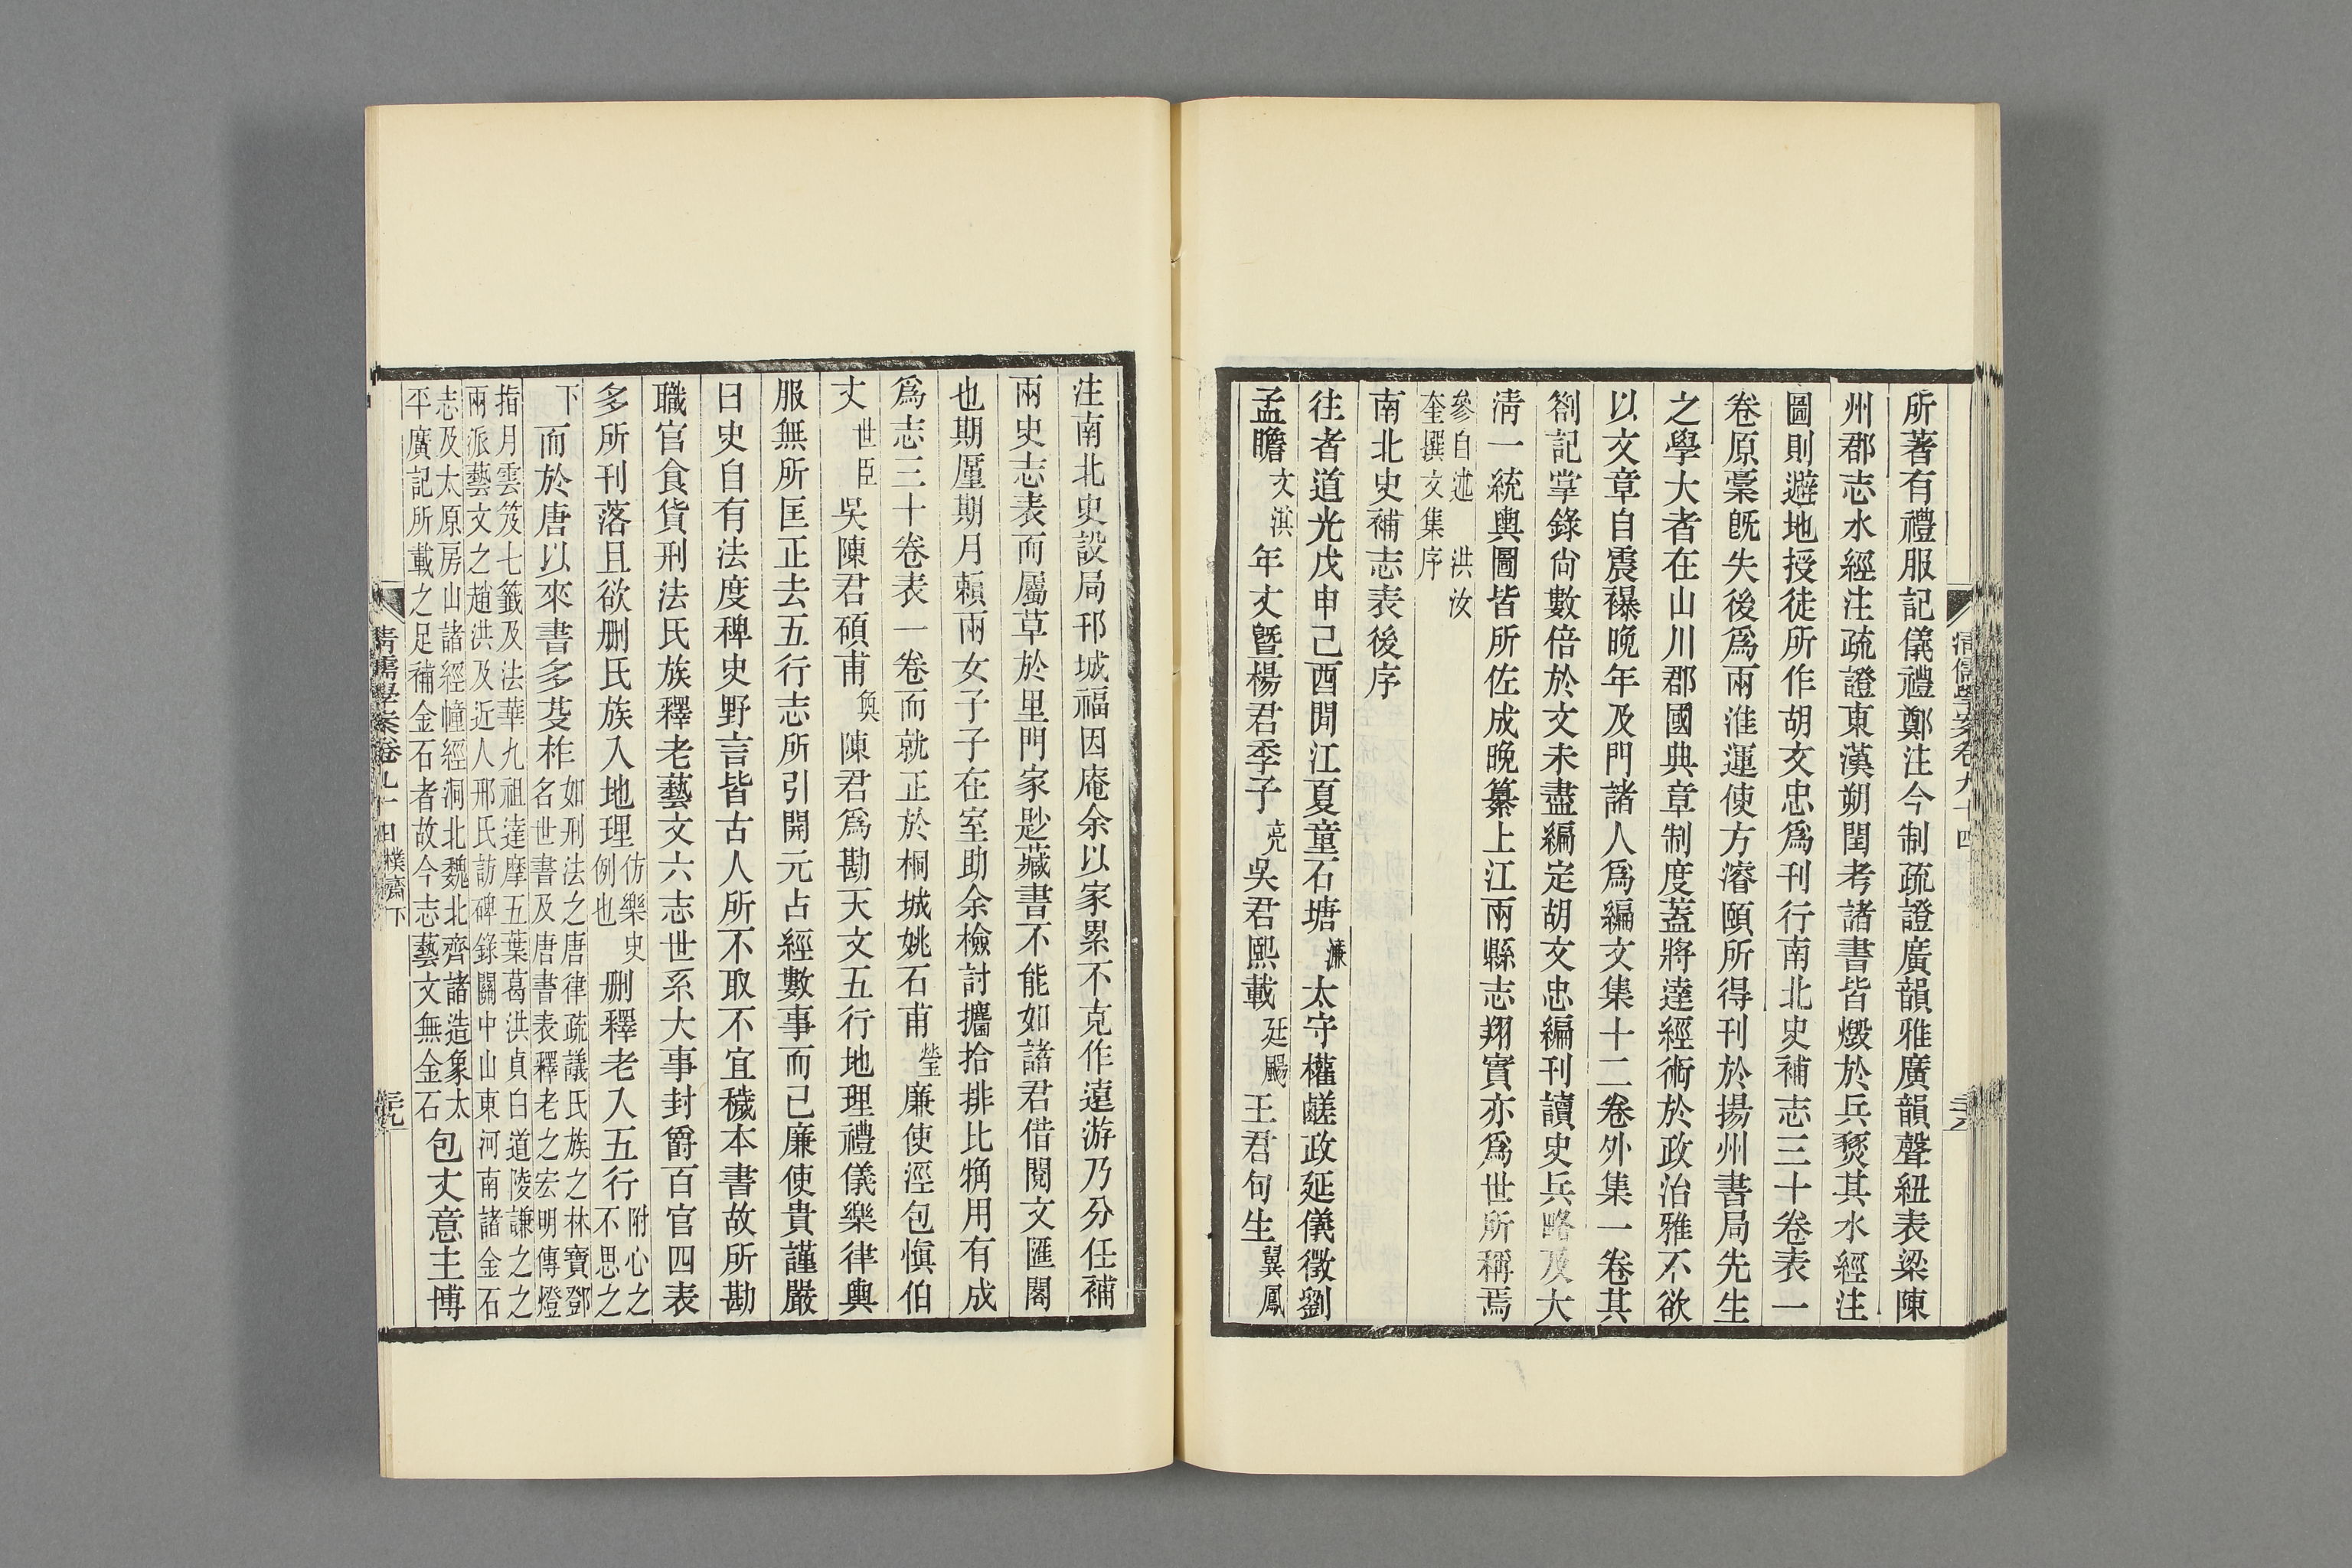 清儒學案卷九十四
所著有禮服記儀禮鄭注今制疏證廣韻雅廣韻聲紐表梁陳
州郡志水經注疏證東漢朔閏考諸書皆燬於兵燹其水經注
圖則避地授徒所作胡文忠爲刊行南北史補志三十卷表一
卷原稾旣失後爲兩淮運使方濬頤所得刊於揚州書局先生
之學大者在山川郡國典章制度蓋將達經術於政治雅不欲
以文章自震襮晚年及門諸人爲編文集十二卷外集一卷其
劄記掌錄尙數倍於文未盡編定胡文忠編刊讀史兵略及大
淸一統輿圖皆所佐成晚纂上江兩縣志翔實亦爲世所稱焉
參自述　洪汝
奎撰文集序
南北史補志表後序
往者道光戊申己酉閒江夏童石塘濂太守權鹺政延儀徵劉
孟瞻文淇年丈曁楊君季子亮吳君熙載廷颺王君句生翼鳳
注南北史設局邗城福因庵余以家累不克作遠游乃分任補
兩史志表而屬草於里門家尟藏書不能如諸君借閱文匯閣
也期厪期月賴兩女子子在室助余檢討攟拾排比觕用有成
爲志三十卷表一卷而就正於桐城姚石甫瑩廉使涇包愼伯
丈世臣吳陳君碩甫奐陳君爲勘天文五行地理禮儀樂律輿
服無所匡正去五行志所引開元占經數事而已廉使貴謹嚴
曰史自有法度稗史野言皆古人所不取不宜穢本書故所勘
職官食貨刑法氏族釋老藝文六志世系大事封爵百官四表
多所刊落且欲删氏族入地理仿樂史例也删釋老入五行附心之不思之
下而於唐以來書多芟柞如刑法之唐律疏議氏族之林寶鄧名世書及唐書表釋老之宏明傳燈
指月雲笈七籤及法華九祖達摩五葉葛洪貞白道陵謙之之
兩派藝文之趙洪及近人邢氏訪碑錄關中山東河南諸金石
志及太原房山諸經幢經洞北魏北齊諸造象太
平廣記所載之足補金石者故今志藝文無金石包丈意主博
清儒學案卷九十四　樸齋下　三十九